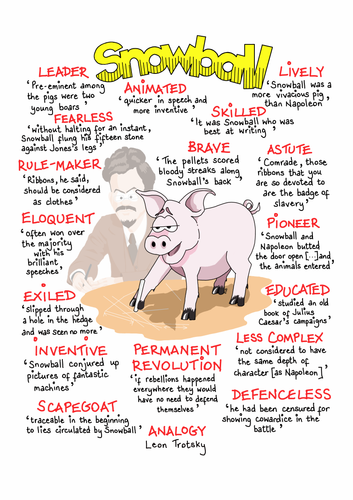 Snowball
LEADER
'Pre-eminent among
the pigs were two
young boars'
ANIMATED
'quicker in speech and
more inventive'
LIVELY
'Snowball was a
more vivacious pig
than Napoleon'
FEARLESS
'without halting for an instant,
Snowball flung his fifteen stone
against Jones's legs'
SKILLED
'It was Snowball who was
best at writing'
RULE-MAKER
'Ribbons, he said,
should be considered
as clothes'
BRAVE
'The pellets scored
bloody streaks along
Snowball's back'
ASTUTE
'Comrade, those
ribbons that you
are so devoted to
are the badge of
slavery'
ELOQUENT
'often won over
the majority
with his
brilliant
speeches'
PIONEER
'Snowball and
Napoleon butted
the door open [...]and
the animals entered'
EXILED
'slipped through
a hole in the hedge
and was seen no more'
EDUCATED
'studied an old
book of Julius
Caesar's campaigns'
INVENTIVE
'Snowball conjured up
pictures of fantastic
machines'
PERMANENT
REVOLUTION
'if rebellions happened
everywhere they would
have no need to defend
themselves'
LESS COMPLEX
'not considered to have
the same depth of
character [as Napoleon]'
SCAPEGOAT
'traceable in the beginning
to lies circulated by Snowball'
DEFENCELESS
'he had been censured for
showing cowardice in the
battle'
ANALOGY
Leon Trotsky